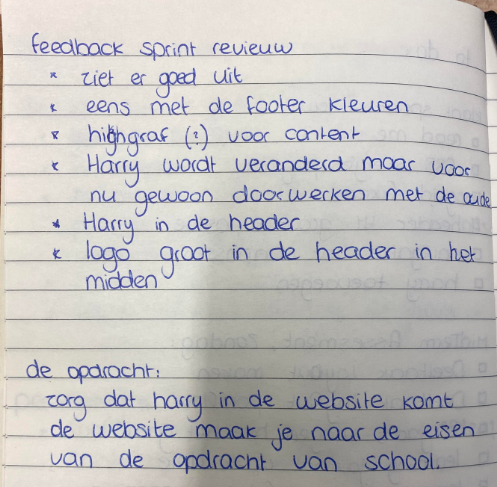 feedback sprint revieuw
* ziet er goed uit
* eens met de footer kleuren
* highgraf (?) voor content
* Harry wordt veranderd maar voor
nu gewoon doorwerken met de oude
* Harry in de header
* logo groot in de header in het
midden
de opdracht:
zorg dat harry in de website komt
de website maak je naar de eisen
van de opdracht van school.